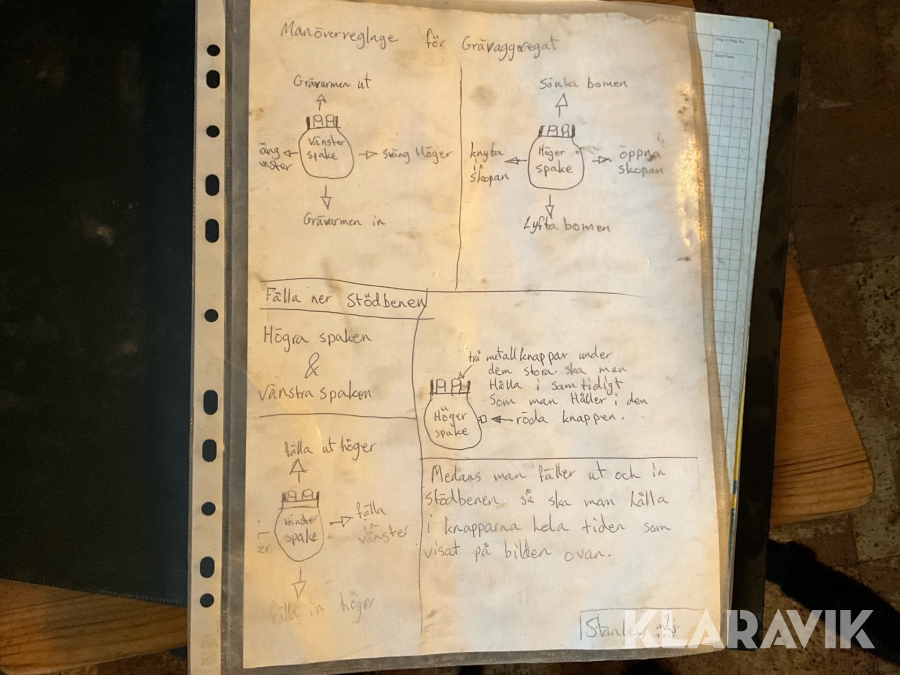 Manöverreglage för Grävaggregat
Grävarmen ut
vänster
spake
sväng Höger
Grävarmen in
Sänka bomen
knyta
i
skopan
Höger
spake
öppna
skopan
Lyfta bomen
Fälla ner Stödbenen
Högra spaken
&
vänstra spaken
två metallknappar under
dem stora ska man
Hålla i samtidigt
som man Håller i den
röda knappen.
Höger
spake
fälla ut höger
vänster
spake
fälla
in
vänster
fälla in höger
Medans man fäller ut och in
stödbenen så ska man hålla
i knapparna hela tiden som
visat på bilden ovan.
KLARAVIK